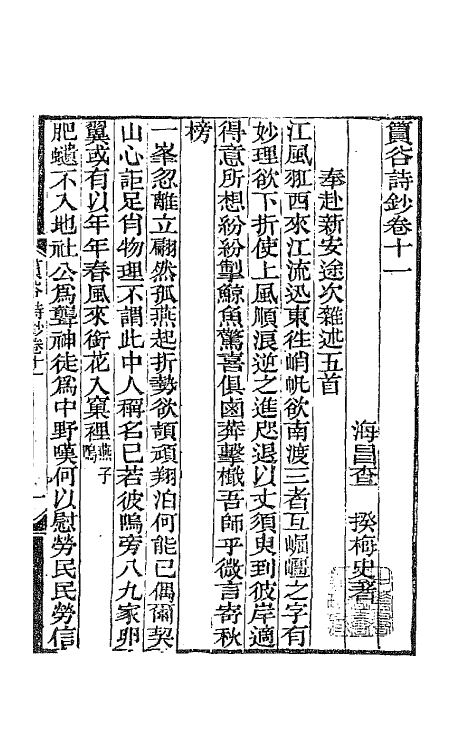 篔谷詩鈔卷十一
海昌查　揆梅史著
奉赴新安途次雜述五首
江風狃西來江流迅東往峭帆欲南渡三者互崛㠥之字有
妙理欲下折使上風順浪逆之進咫退以丈須臾到彼岸適
得意所想紛紛掣鯨魚驚喜俱鹵莽擊檝吾師乎微言寄秋
榜
一峯忽離立翩然孤燕起折勢欲頡頏翔泊何能已偶爾契
山心詎足肖物理不謂此中人稱名已若彼嗚旁八九家卵
翼或有以年年春風來銜花入窠裡燕子嗚
肥蟣不入地社公為聾神徒為中野嘆何以慰勞民民勞信
篔谷詩鈔卷十一
一